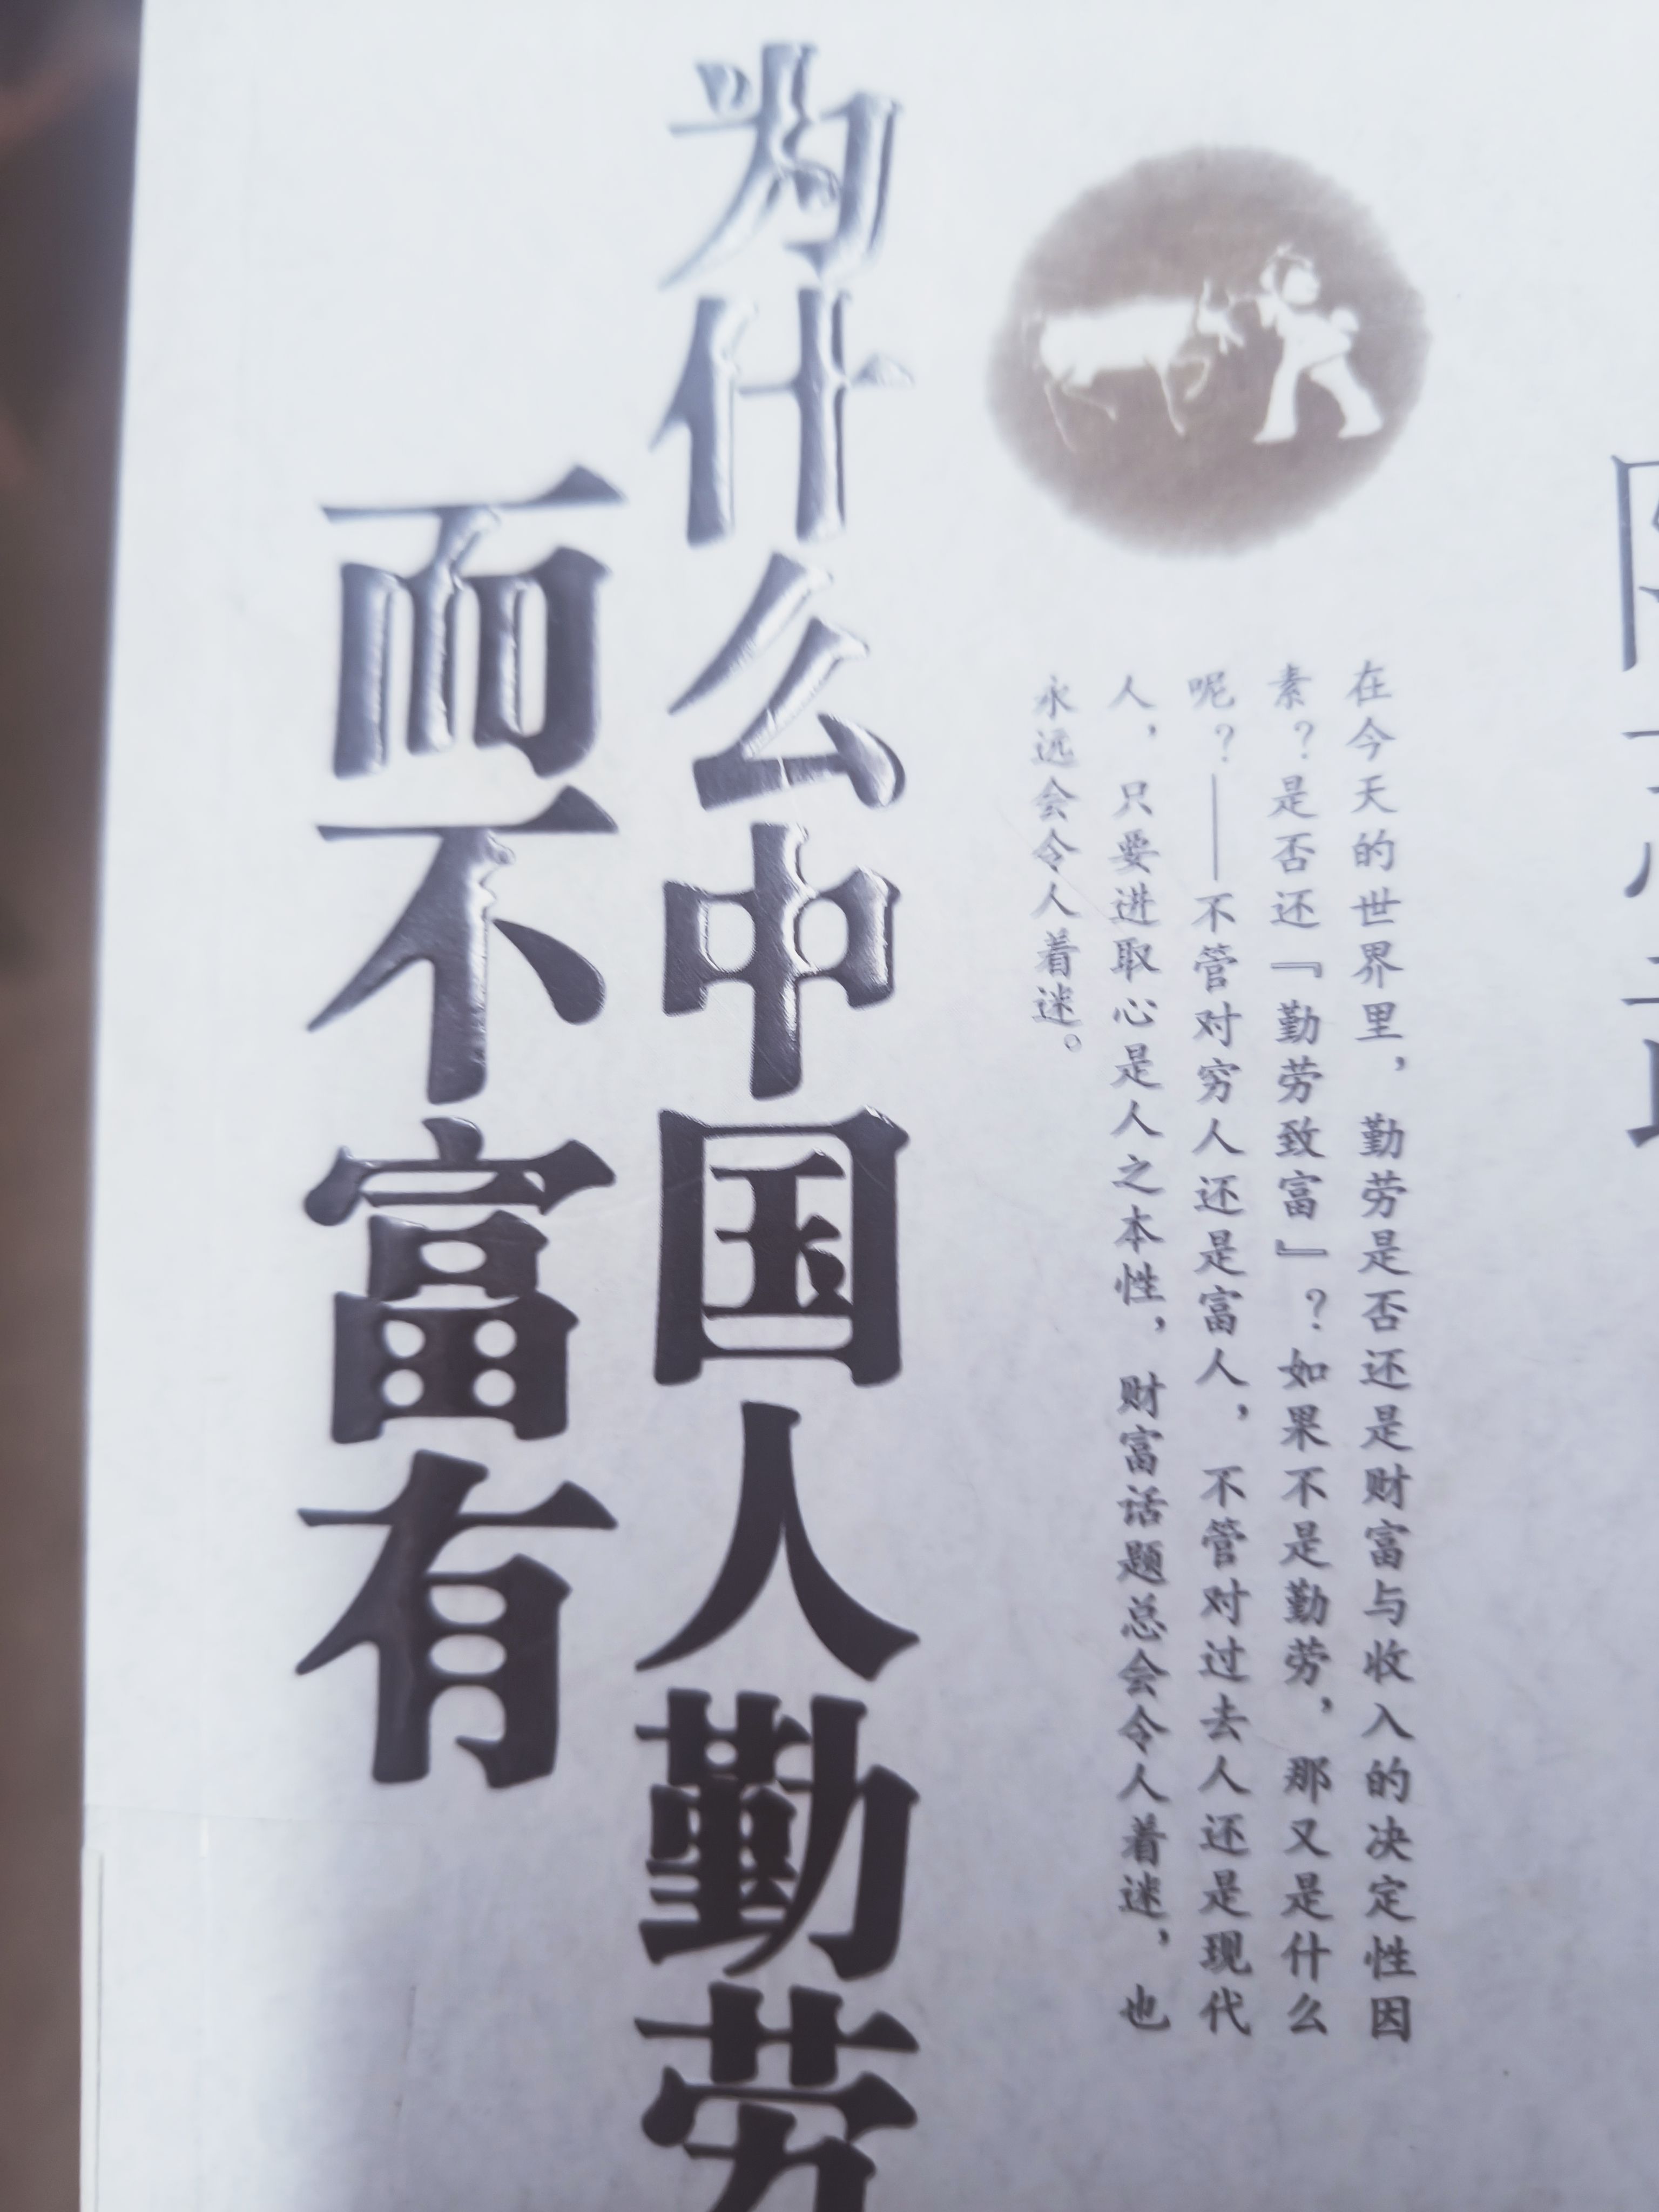 在今天的世界里，勤劳是否还是财富与收入的决定性因
素？是否还『勤劳致富』？如果不是勤劳，那又是什么
呢？——不管对穷人还是富人，不管对过去人还是现代
人，只要进取心是人之本性，财富话题总会令人着迷，也
永远会令人着迷。
为什么中国人勤劳
而不富有